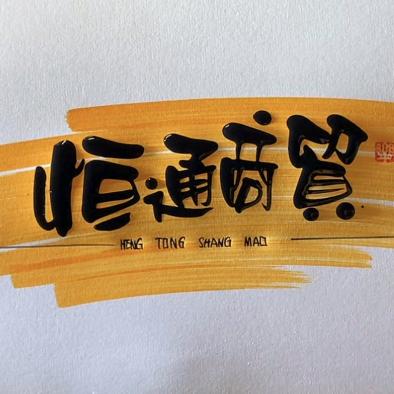 恒通商贸
HENG TONG SHANG MAO